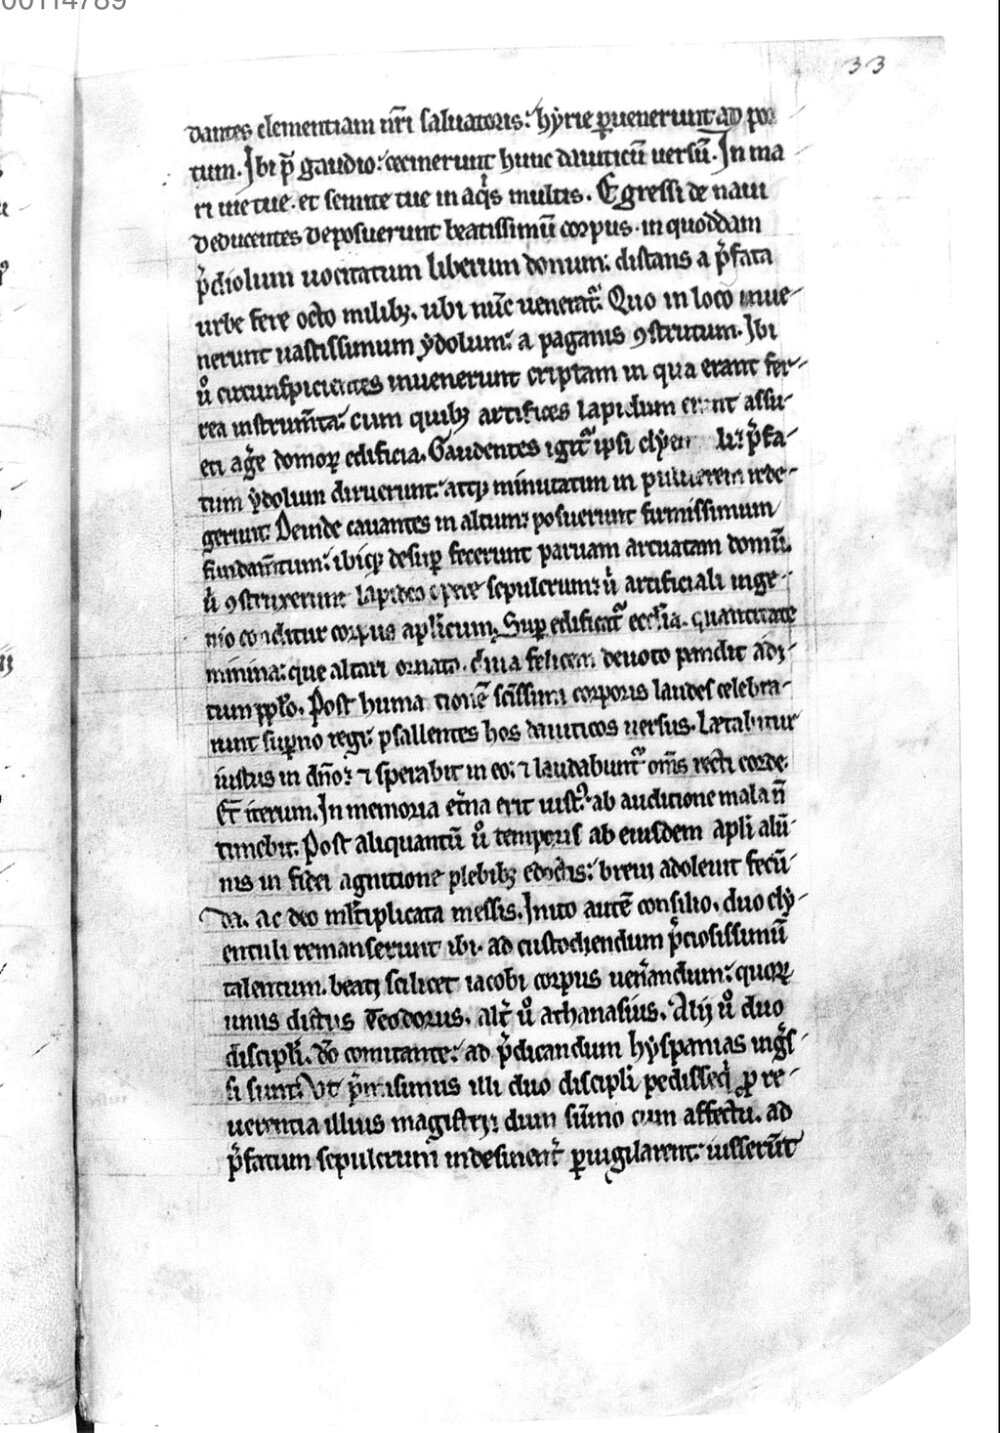 00114789
33
dantes clementiam nr̄i saluatoris: hẏrie ꝑuenerunt ad por
tum. Ibi p̄ gaudio: cecinerunt hunc dauiticū uersū. In ma
ri uie tue. et semite tue in aqͥs multis. Egressi de naui
deducentes deposuerunt beatissimū corpus. in quoddam
p̄diolum uocitatum liberum donum: distans a p̄fata
urbe fere octo milibꝫ. ubi nūc ueneratᷣ. Quo in loco inue-
nerunt uastissimum ẏdolum: a paganis ꝯstrutum. Ibi
uͦ circunspicientes inuenerunt criptam in qua erant fer-
rea instrum̄ta: cum quibꝫ artifices lapidum erant assu-
eti ag̓e domoꝝ edificia. Gaudentes igitᷣ ipsi clẏen p̄fa-
tum ẏdolum diruerunt: atqꝫ minutatim in puluerem rede-
gerunt. Deinde cauantes in altum: posuerunt firmissimum
fundam̄tum: ibiqꝫ desuꝑ fecerunt paruam arcuatam domū.
ꝯstruxerunt lapideo opere sepulcrum: artificiali inge-
nio conditur corpus apl̓icum. Suꝑ edificatᷣ eccl̓ia. quantitate
minima: que altari ornato. diua felicem deuoto pandit adi-
tum ppl̓o. Post huma tionē sc̄issimi corporis laudes celebra-
runt suꝑno regi: psallentes hos dauiticos uersus. Lætabitur
iustus in dn̄o: ⁊ sperabit in eo: ⁊ laudabuntᷣ om̄s recti corde.
Et iterum. In memoria et̓na erit iustꝰ: ab auditione mala n̄
timebit. Post aliquantū uͦ temporis ab eiusdem apl̓i alū-
nis in fidei agnitione plebibꝫ edoctis: breui adoleuit fecū-
da. ac deo ml̓tiplicata messis. Inito autē consilio. duo clẏ-
entuli remanserunt ibi. ad custodiendum p̄ciosissimū
talentum. beati scilicet iacobi corpus uen̓andum: quoꝝ
unus dictus Teodorus. alt̓ uͦ athanasius. Alij uͦ duo
discipl̓i. dō comitante: ad p̄dicandum hẏspanias ing̓s-
si sunt. Vt p̄m isimus illi duo discipl̓i pedisseqͥ ꝓ re-
uerentia illius magistri: dum sūmo cum affectu. ad
p̄fatum sepulcrum indesinent̓ ꝑuigilarent: iusserūt